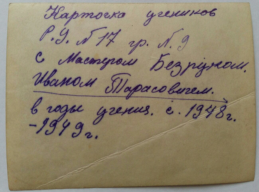 Карточка учеников
Р.У. №17 гр. №9
с Мастером Безрідном.
Иваном Тарасовичем.
в годы учения. с. 1948г.
-1949г.